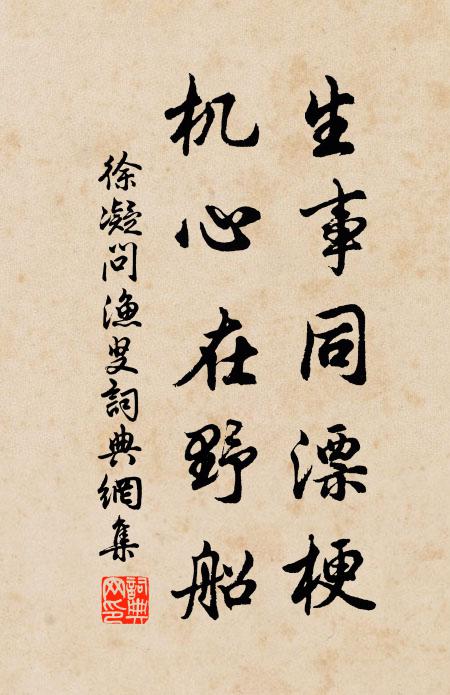 生事同漂梗
机心在野船
徐凝问渔叟詞典網集
詞典文印